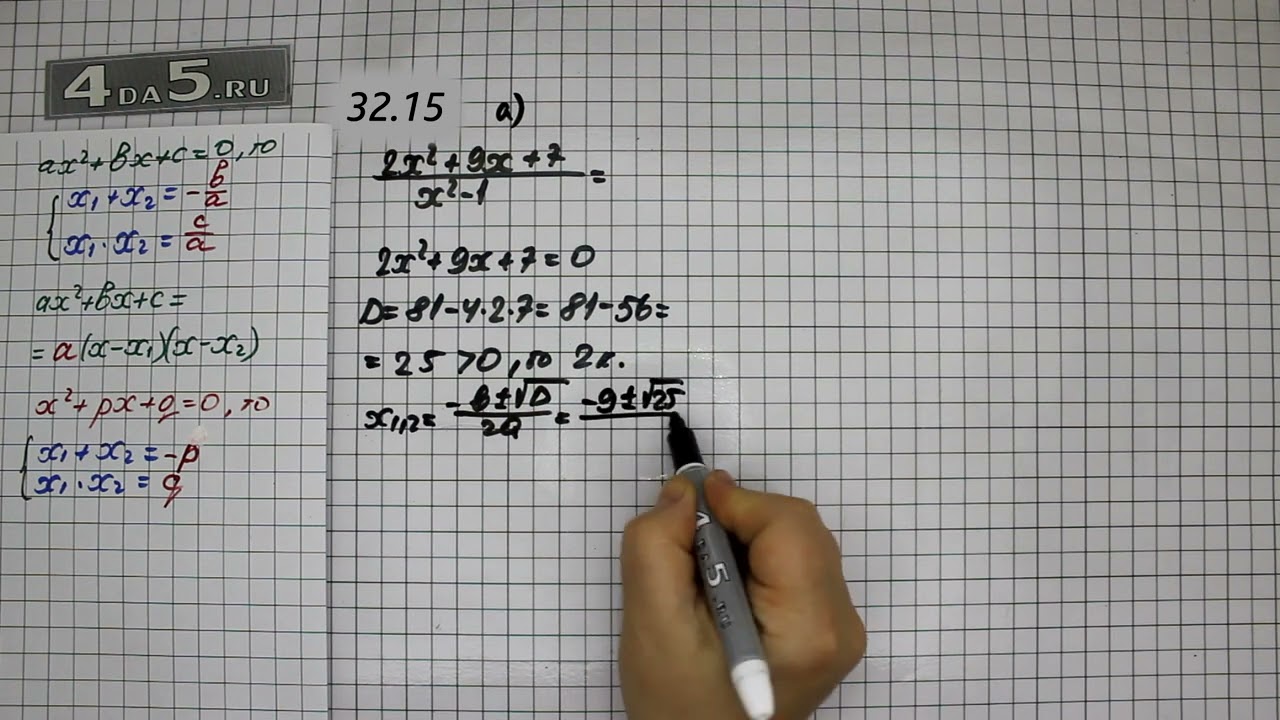 4DA5.RU
ax²+вx+c=0, то
x₁+x₂=-в/a
x₁·x₂=c/a
ax²+вx+c=
=a(x-x₁)(x-x₂)
x²+px+q=0, то
x₁+x₂=-p
x₁·x₂=q
32.15 а)
(2x²+9x+7)/(x²-1)=
2x²+9x+7=0
D=81-4·2·7=81-56=
=25>0, то 2к.
x₁,₂=(-в±√D)/2a=-9±√25
4 DA 5 .RU